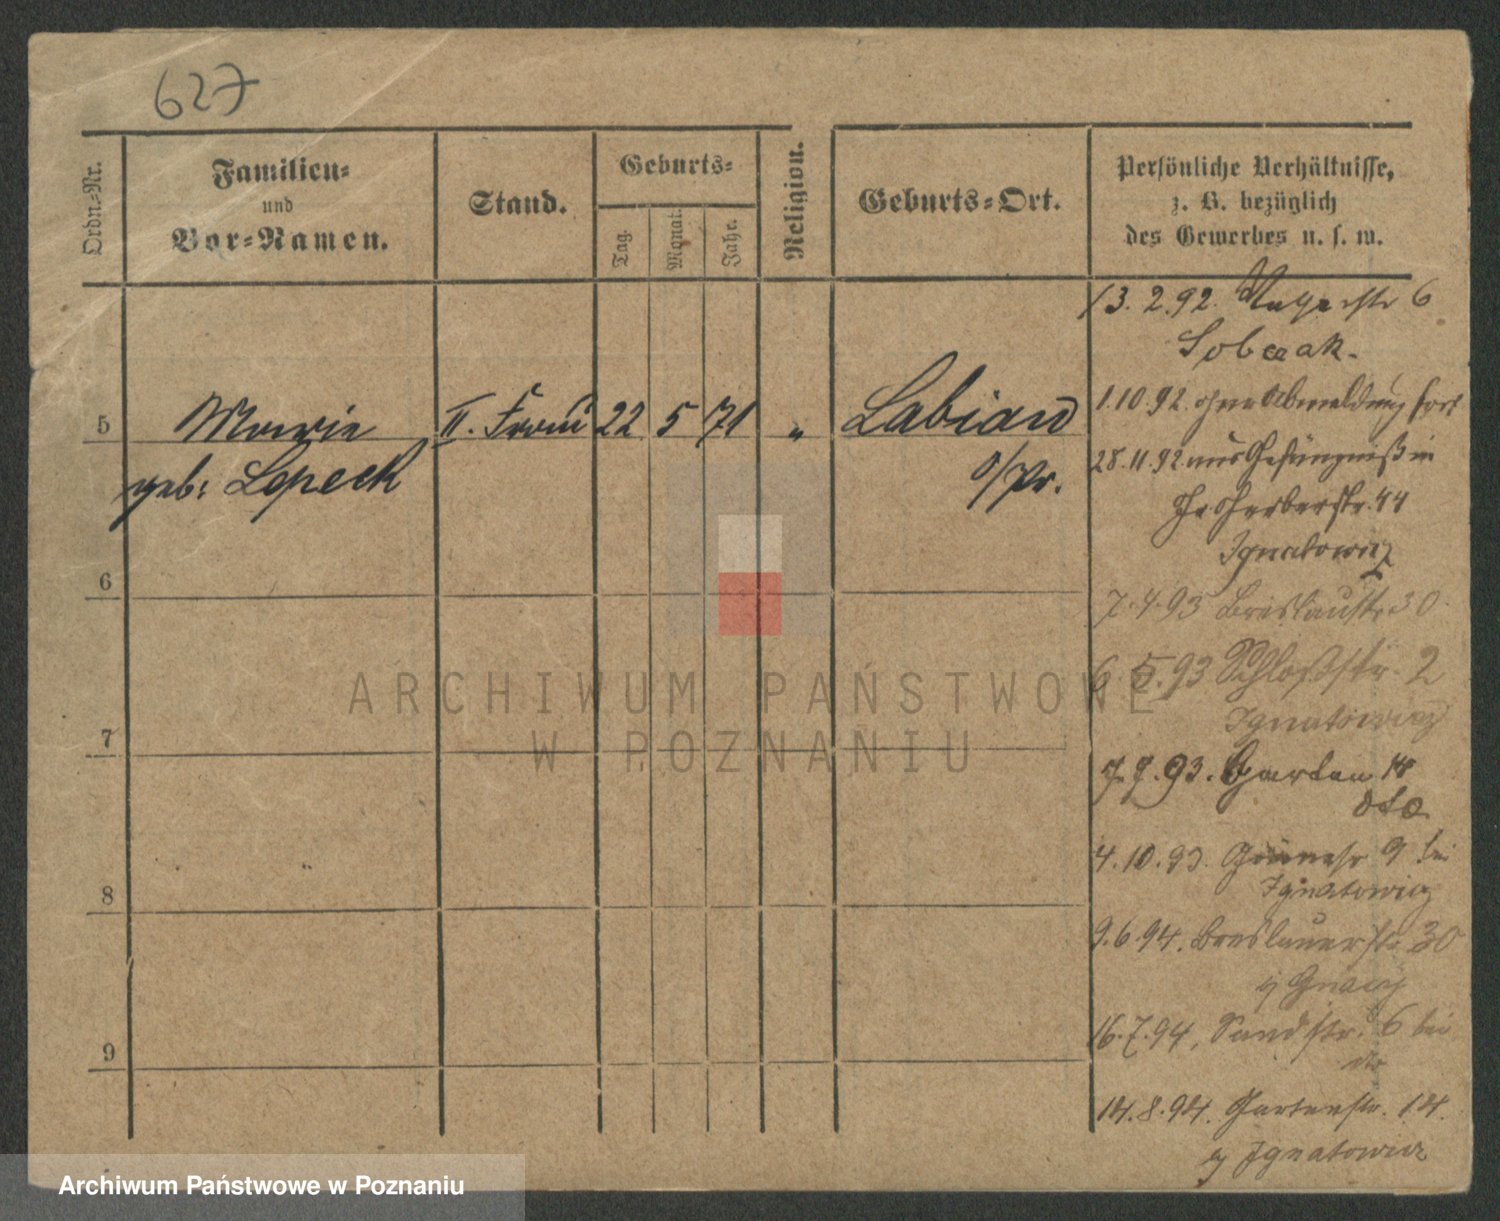 627
Ordn.-Nr.
Familien-
und
Vor-Namen.
Stand.
Geburts-
Tag.
Monat.
Jahr.
Religion.
Geburts-Ort.
Persönliche Verhältnisse,
z. B. bezüglich
des Gewerbes u. s. w.
5
Marie
geb: Lopeck
II. Frau
22
5
71
"
Labiau
O/Pr.
13. 2. 92. 6
Sobczak.
1. 10. 92. ohne Abmeldung fort
28. 11. 92 aus Gefängniß in
Gr. Gerberstr. 44
Ignatowicz
6
7. 4. 93 Breslaustr 30
6 5. 93 Schloßstr. 2
Ignatowicz
7
7. 9. 93. Garten 14
8
4. 10. 93. 9 bei
Ignatowicz
9. 6. 94. Breslauerstr 30
9
16. 7. 94. Sandstr. 6 bei
14. 8. 94. Gartenstr. 14.
Ignatowicz
ARCHIWUM PAŃSTWOWE
W POZNANIU
Archiwum Państwowe w Poznaniu